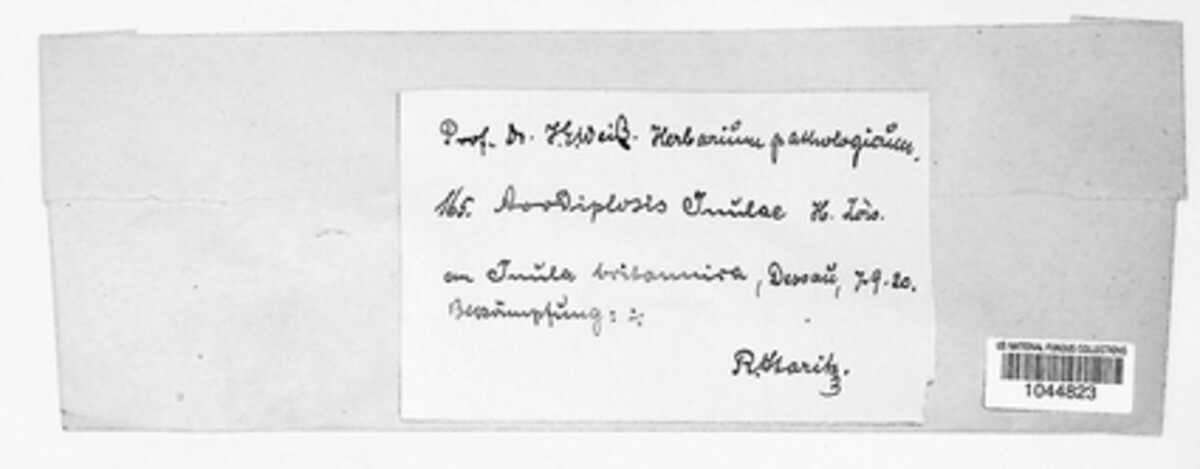 Prof. Dr. H.E.Weiß. Herbarium pathologicum.
165. Inulae H. Lòw.
an Inula britannica, Dessau, 7-9-20.
Bekämpfung: ÷
R. Staritz.
US NATIONAL FUNGUS COLLECTIONS
1044823